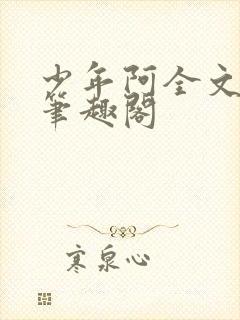 少年阿全文
筆趣閣
寒泉心